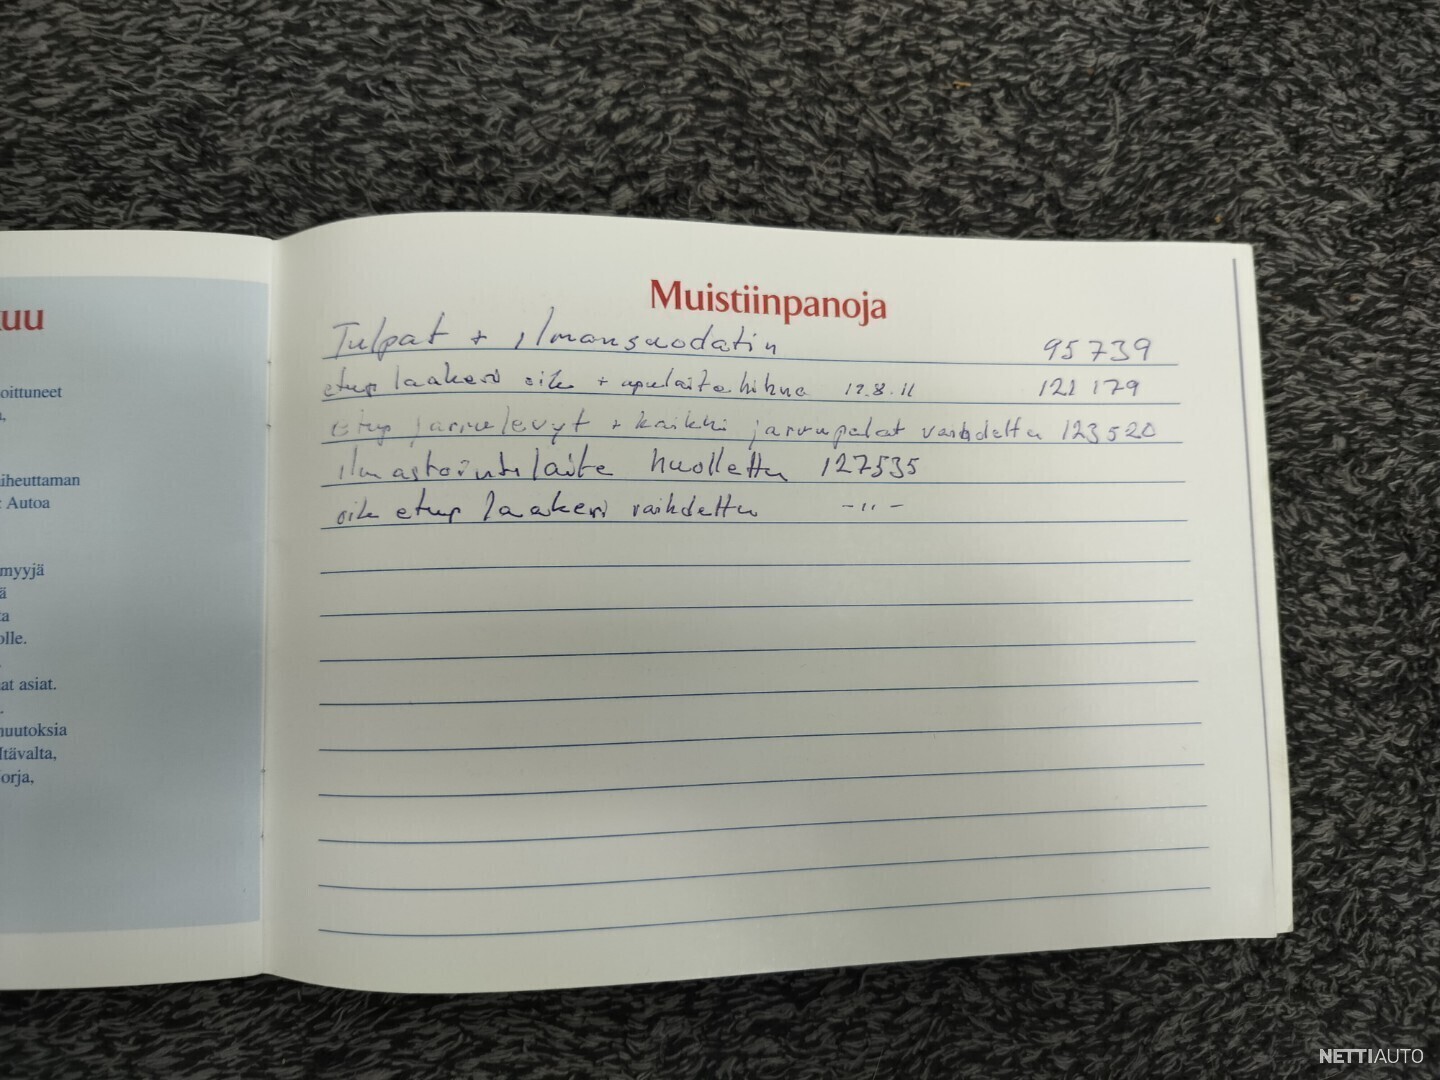 uu
oittuneet
iheuttaman
: Autoa
myyjä
ä
ta
olle.
at asiat.
nuutoksia
ltävalta,
orja,
Muistiinpanoja
Tulpat + ilmansuodatin 95739
etup laakeri oik + apulaitehihna 12.8.11 121 179
etup jarrulevyt + kaikki jarrupalat vaihdettu 123520
ilmastointilaite huollettu 127535
oik etup laakeri vaihdettu -"-
NETTIAUTO